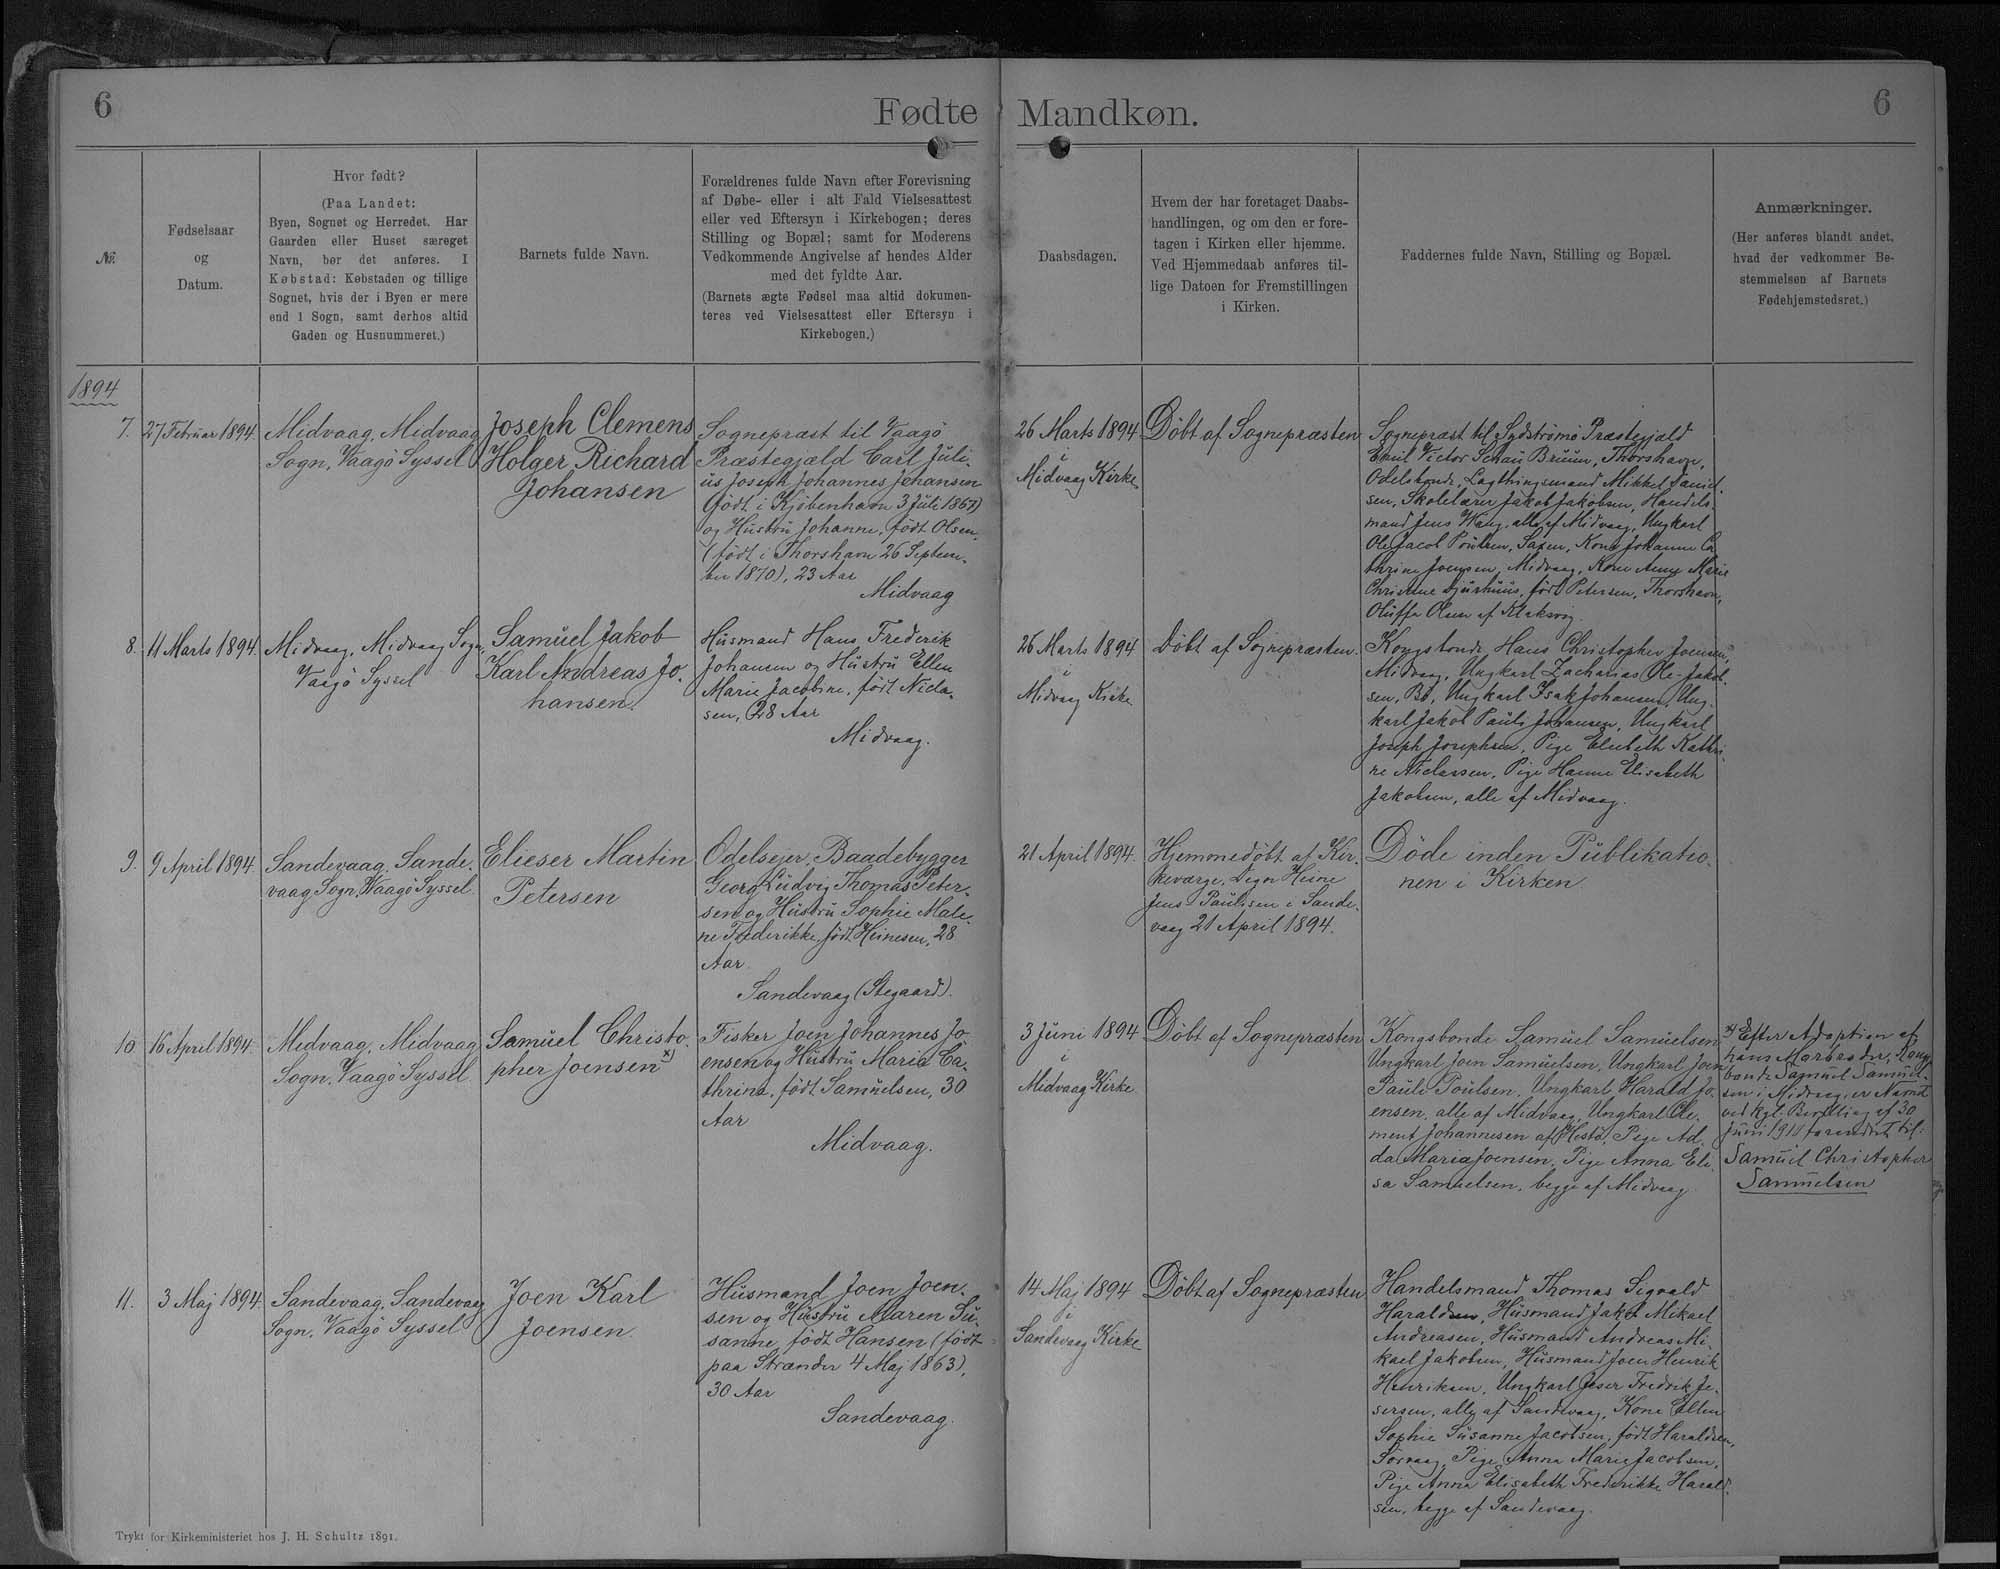 6
Fødte
Mandkøn.
6
No.
Fødselsaar
og
Datum.
Hvor født?
(Paa Landet:
Byen, Sognet og Herredet. Har
Gaarden eller Huset særeget
Navn, bør det anføres. I
Købstad: Købstaden og tillige
Sognet, hvis der i Byen er mere
end 1 Sogn, samt derhos altid
Gaden og Husnummeret.)
Barnets fulde Navn.
Forældrenes fulde Navn efter Forevisning
af Døbe- eller i alt Fald Vielsesattest
eller ved Eftersyn i Kirkebogen; deres
Stilling og Bopæl; samt for Moderens
Vedkommende Angivelse af hendes Alder
med det fyldte Aar.
(Barnets ægte Fødsel maa altid dokumen-
teres ved Vielsesattest eller Eftersyn i
Kirkebogen.)
Daabsdagen.
Hvem der har foretaget Daabs-
handlingen, og om den er fore-
tagen i Kirken eller hjemme.
Ved Hjemmedaab anføres til-
lige Datoen for Fremstillingen
i Kirken.
Faddernes fulde Navn, Stilling og Bopæl.
Anmærkninger.
(Her anføres blandt andet,
hvad der vedkommer Be-
stemmelsen af Barnets
Fødehjemstedsret.)
1894
7.
27 Februar 1894.
Midvaag, Midvaag
Sogn, Vaagø Syssel
Joseph Clemens
Holger Richard
Johansen
Sognepræst til Vaagø
Præstegjæld Carl Juli-
us Joseph Johannes Johansen
(født i Kjøbenhavn 3 Juli 1867)
og Hustru Johanne, født Olsen
(født i Thorshavn 26 Septem-
ber 1870), 23 Aar
Midvaag
26 Marts 1894
i
Midvaag Kirke
Døbt af Sognepræsten
Sognepræst til Sydstrømø Præstegjæld
Emil Victor Schau Bruun, Thorshavn,
Odelsbonde, Lagthingsmand Mikkel Daniel-
sen, Skolelærer Jakob Jakobsen, Handels-
mand Jens Wang, alle af Midvaag, Ungkarl
Ole Jacob Poulsen, Saxen, Kone Johanne Ca-
thrine Joensen, Midvaag, Kone Anna Marie
Christine Djurhuus, født Petersen, Thorshavn,
Oluffa Olsen af Klaksvig.
8.
11 Marts 1894.
Midvaag, Midvaag Sogn,
Vaagø Syssel
Samuel Jakob
Karl Andreas Jo-
hansen.
Husmand Hans Frederik
Johansen og Hustru Ellen
Marie Jacobine, født Nicla-
sen, 28 Aar
Midvaag.
26 Marts 1894
i
Midvaag Kirke
Døbt af Sognepræsten.
Kongsbonde Hans Christopher Joensen,
Midvaag, Ungkarl Zacharias Ole Jakob-
sen, Bø, Ungkarl Isak Johansen, Ung-
karl Jakob Pauli Johansen, Ungkarl
Joseph Josephsen, Pige Elsebeth Kathri-
ne Niclassen, Pige Hanne Elisabeth
Jakobsen, alle af Midvaag.
9.
9 April 1894.
Sandevaag, Sande-
vaag Sogn, Vaagø Syssel.
Elieser Martin
Petersen
Odelsejer, Baadebygger
Georg Ludvig Thomas Peter-
sen og Hustru Sophie Male-
ne Frederikke, født Heinesen, 28
Aar
Sandevaag (Stegaard).
21 April 1894.
Hjemmedøbt af Kir-
keværge, Degn Heine
Jens Paulisen i Sande-
vaag 21 April 1894.
Døde inden Publikatio-
nen i Kirken.
10
16 April 1894.
Midvaag, Midvaag
Sogn, Vaagø Syssel
Samuel Christo-
pher Joensen x)
Fisker Joen Johannes Jo-
ensen og Hustru Maria Ca-
thrina, født Samuelsen, 30
Aar
Midvaag.
3 Juni 1894
i
Midvaag Kirke
Døbt af Sognepræsten
Kongsbonde Samuel Samuelsen
Ungkarl Joen Samuelsen, Ungkarl Joen
Pauli Poulsen, Ungkarl Harald Jo-
ensen, alle af Midvaag, Ungkarl Cle-
ment Johannesen af Hestø, Pige Ad-
da Maria Joensen, Pige Anna Eli-
sa Samuelsen, begge af Midvaag
x) Efter Adoption af
hans Morbroder, Kongs-
bonde Samuel Samuel-
sen i Midvaag, er Navnet
ved kgl. Bevilling af 30
Juni 1910 forandret til:
Samuel Christopher
Samuelsen
11.
3 Maj 1894.
Sandevaag, Sandevaag
Sogn, Vaagø Syssel
Joen Karl
Joensen.
Husmand Joen Joen-
sen og Hustru Maren Su-
sanne, født Hansen (født
paa Strænder 4 Maj 1863),
30 Aar
Sandevaag.
14 Maj 1894
i
Sandevaag Kirke
Døbt af Sognepræsten
Handelsmand Thomas Sigvald
Haraldsen, Husmand Jakob Mikael
Andreasen, Husmand Andreas Mi-
kael Jakobsen, Husmand Joen Henrik
Henriksen, Ungkarl Jeser Fredrik Je-
sersen, alle af Sandevaag, Kone Ellen
Sophie Susanne Jacobsen, født Haraldsen,
Sørvaag, Pige Anna Marie Jacobsen,
Pige Anna Elisabeth Frederikke Harald-
sen, begge af Sandevaag.
Trykt for Kirkeministeriet hos J. H. Schultz 1891.